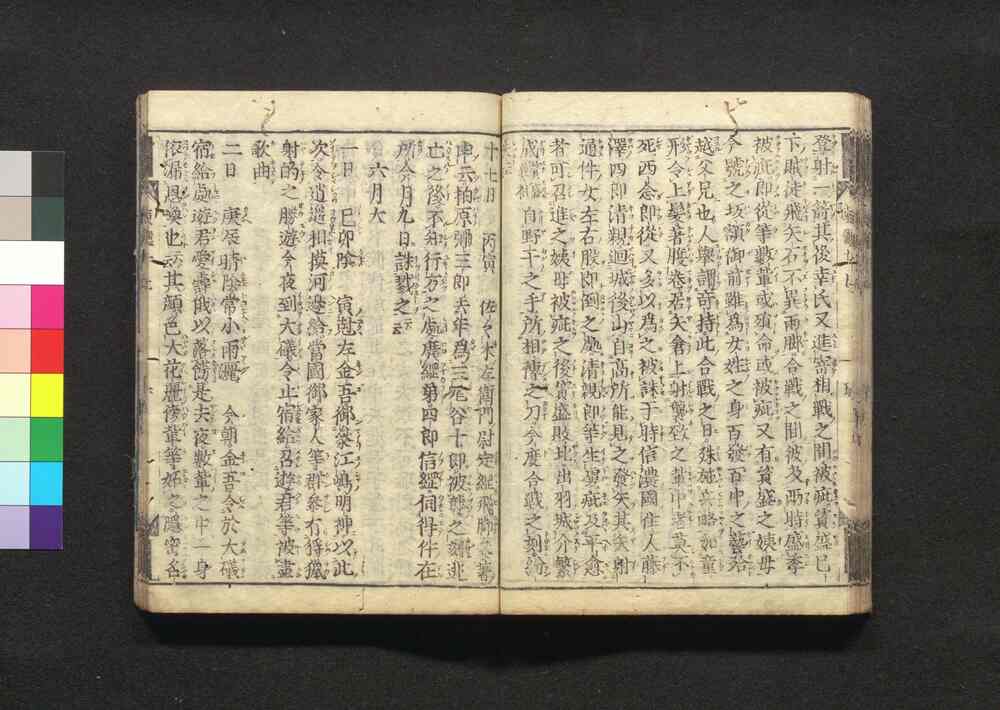 登射一箭其後幸氏又進寄相戰之間被疵資盛已
下賊徒飛矢石不異雨脚合戰之間彼及兩時盛季
被疵即從等數輩或殞命或被疵又有資盛之姨母
号之坂額御前雖爲女性之身百發百中之藝殆
越父兄也人擧謂奇特此合戰之日殊施兵略如童
形令上髮著腹卷居矢倉上射襲致之輩中者莫不
死西念郎從又多以爲之被誅于時信濃國住人藤
澤四郎清親廻城後山自高所能見之發矢其矢射
通件女左右股即倒之處清親郎等生虜疵及平愈
者可召進之姨母被疵之後資盛敗北出羽城介繁
成 自野干之手所相傳之刀今度合戰之刻
十七日 丙寅 佐々木左衞門尉定經飛脚
申云柏原彌三郎去年爲三尾谷十郎被襲之刻逃
亡之後不知行方之處廣經弟四郎信經伺得件在
所今月九日誅戮之云
六月大
一日 己卯陰 寅尅左金吾御參江嶋明神以此
次令逍遥相摸河邊給當國御家人等群參有狩獵
射的之勝遊今夜到大礒令止宿給召遊君等被盡
歌曲
二日 庚辰晴陰常小雨灑 今朝金吾令於大礒
宿給處遊君愛壽俄以落餝是去夜數輩之中一身
依漏恩喚也云其顔色太花麗傍輩等妬之隱密名